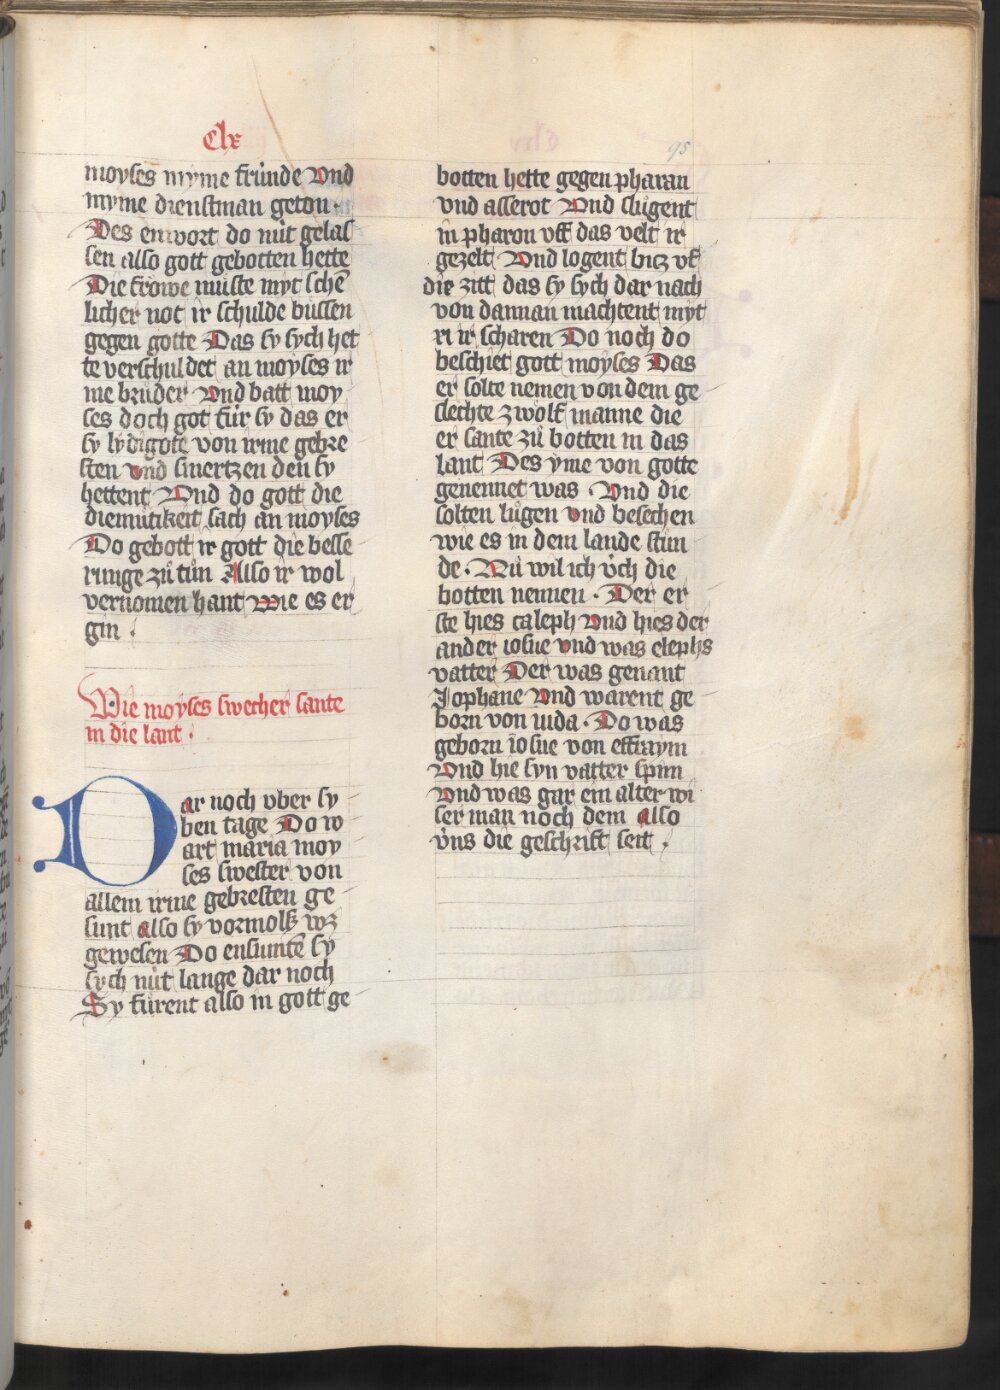 Clx
95
moyses myme fründe Vnd
myme dienstman geton
Des entwort do nüt gelas
sen also gott gebotten hette
Die frowe müste myt schē
licher not ir schulde büssen
gegen gotte Das sy sych het
te verschuldet an moyses ir
me brüder Vnd batt moy
ses doch got für sy das er
sy lydigote von irme gebre
sten vnd smertzen den sy
hettent Vnd do gott die
diemütikeit sach an moyses
Do gebott ir gott die besse
runge zů tůn Also ir wol
vernomen hant wie es er
gin .
Wie moyses swecher sante
in die lant .
Dar noch vber sy
ben tage Do w
art maria moy
ses swester von
allem irme gebresten ge
sunt also sy vormols wz
gewesen Do ensumtē sy
sych nüt lange dar noch
Sy fürent also in gott ge
botten hette gegen pharan
vnd asserot Vnd slügent
in pharon vff das velt ir
gezelt Vnd logent bitz vf
die zitt das sy sych dar nach
von dannan machtent myt
ri ir scharen Do noch do
beschiet gott moyses Das
er solte nemen von dem ge
slechte zwolf manne die
er sante zů botten in das
lant Des yme von gotte
genennet was . Vnd die
solten lůgen vnd besechen
wie es in dem lande stün
de . Nü wil ich üch die
botten nennen . Der er
ste hies caleph Vnd hies der
ander iosue vnd was elephs
vatter Der was genant
Jophane Vnd warent ge
born von iuda . Do was
geborn iosue von effraym
Vnd hie syn vatter spnn
Vnd was gar ein alter wi
ser man noch dem also
üns die geschrift seit .